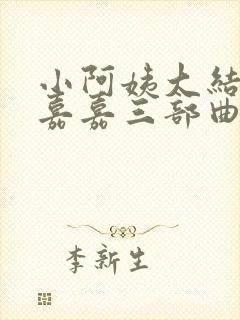 小阿姨大結
嘉嘉三部曲
李新生